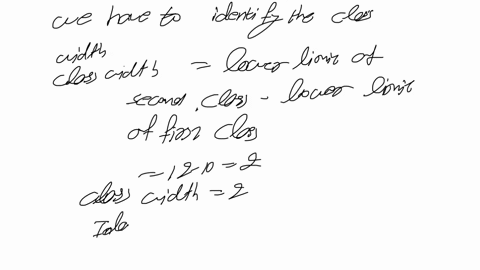 we have to identify the class
width
class width = lower limit of
second class - lower limit
of first class
= 12 10 = 2
class width = 2